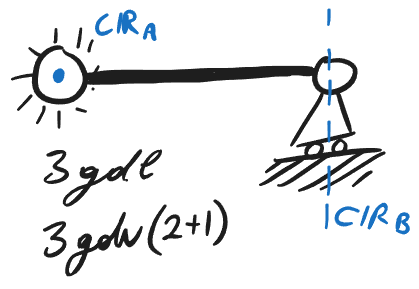 CIR_A
3 gdl
3 gdv (2+1)
CIR_B